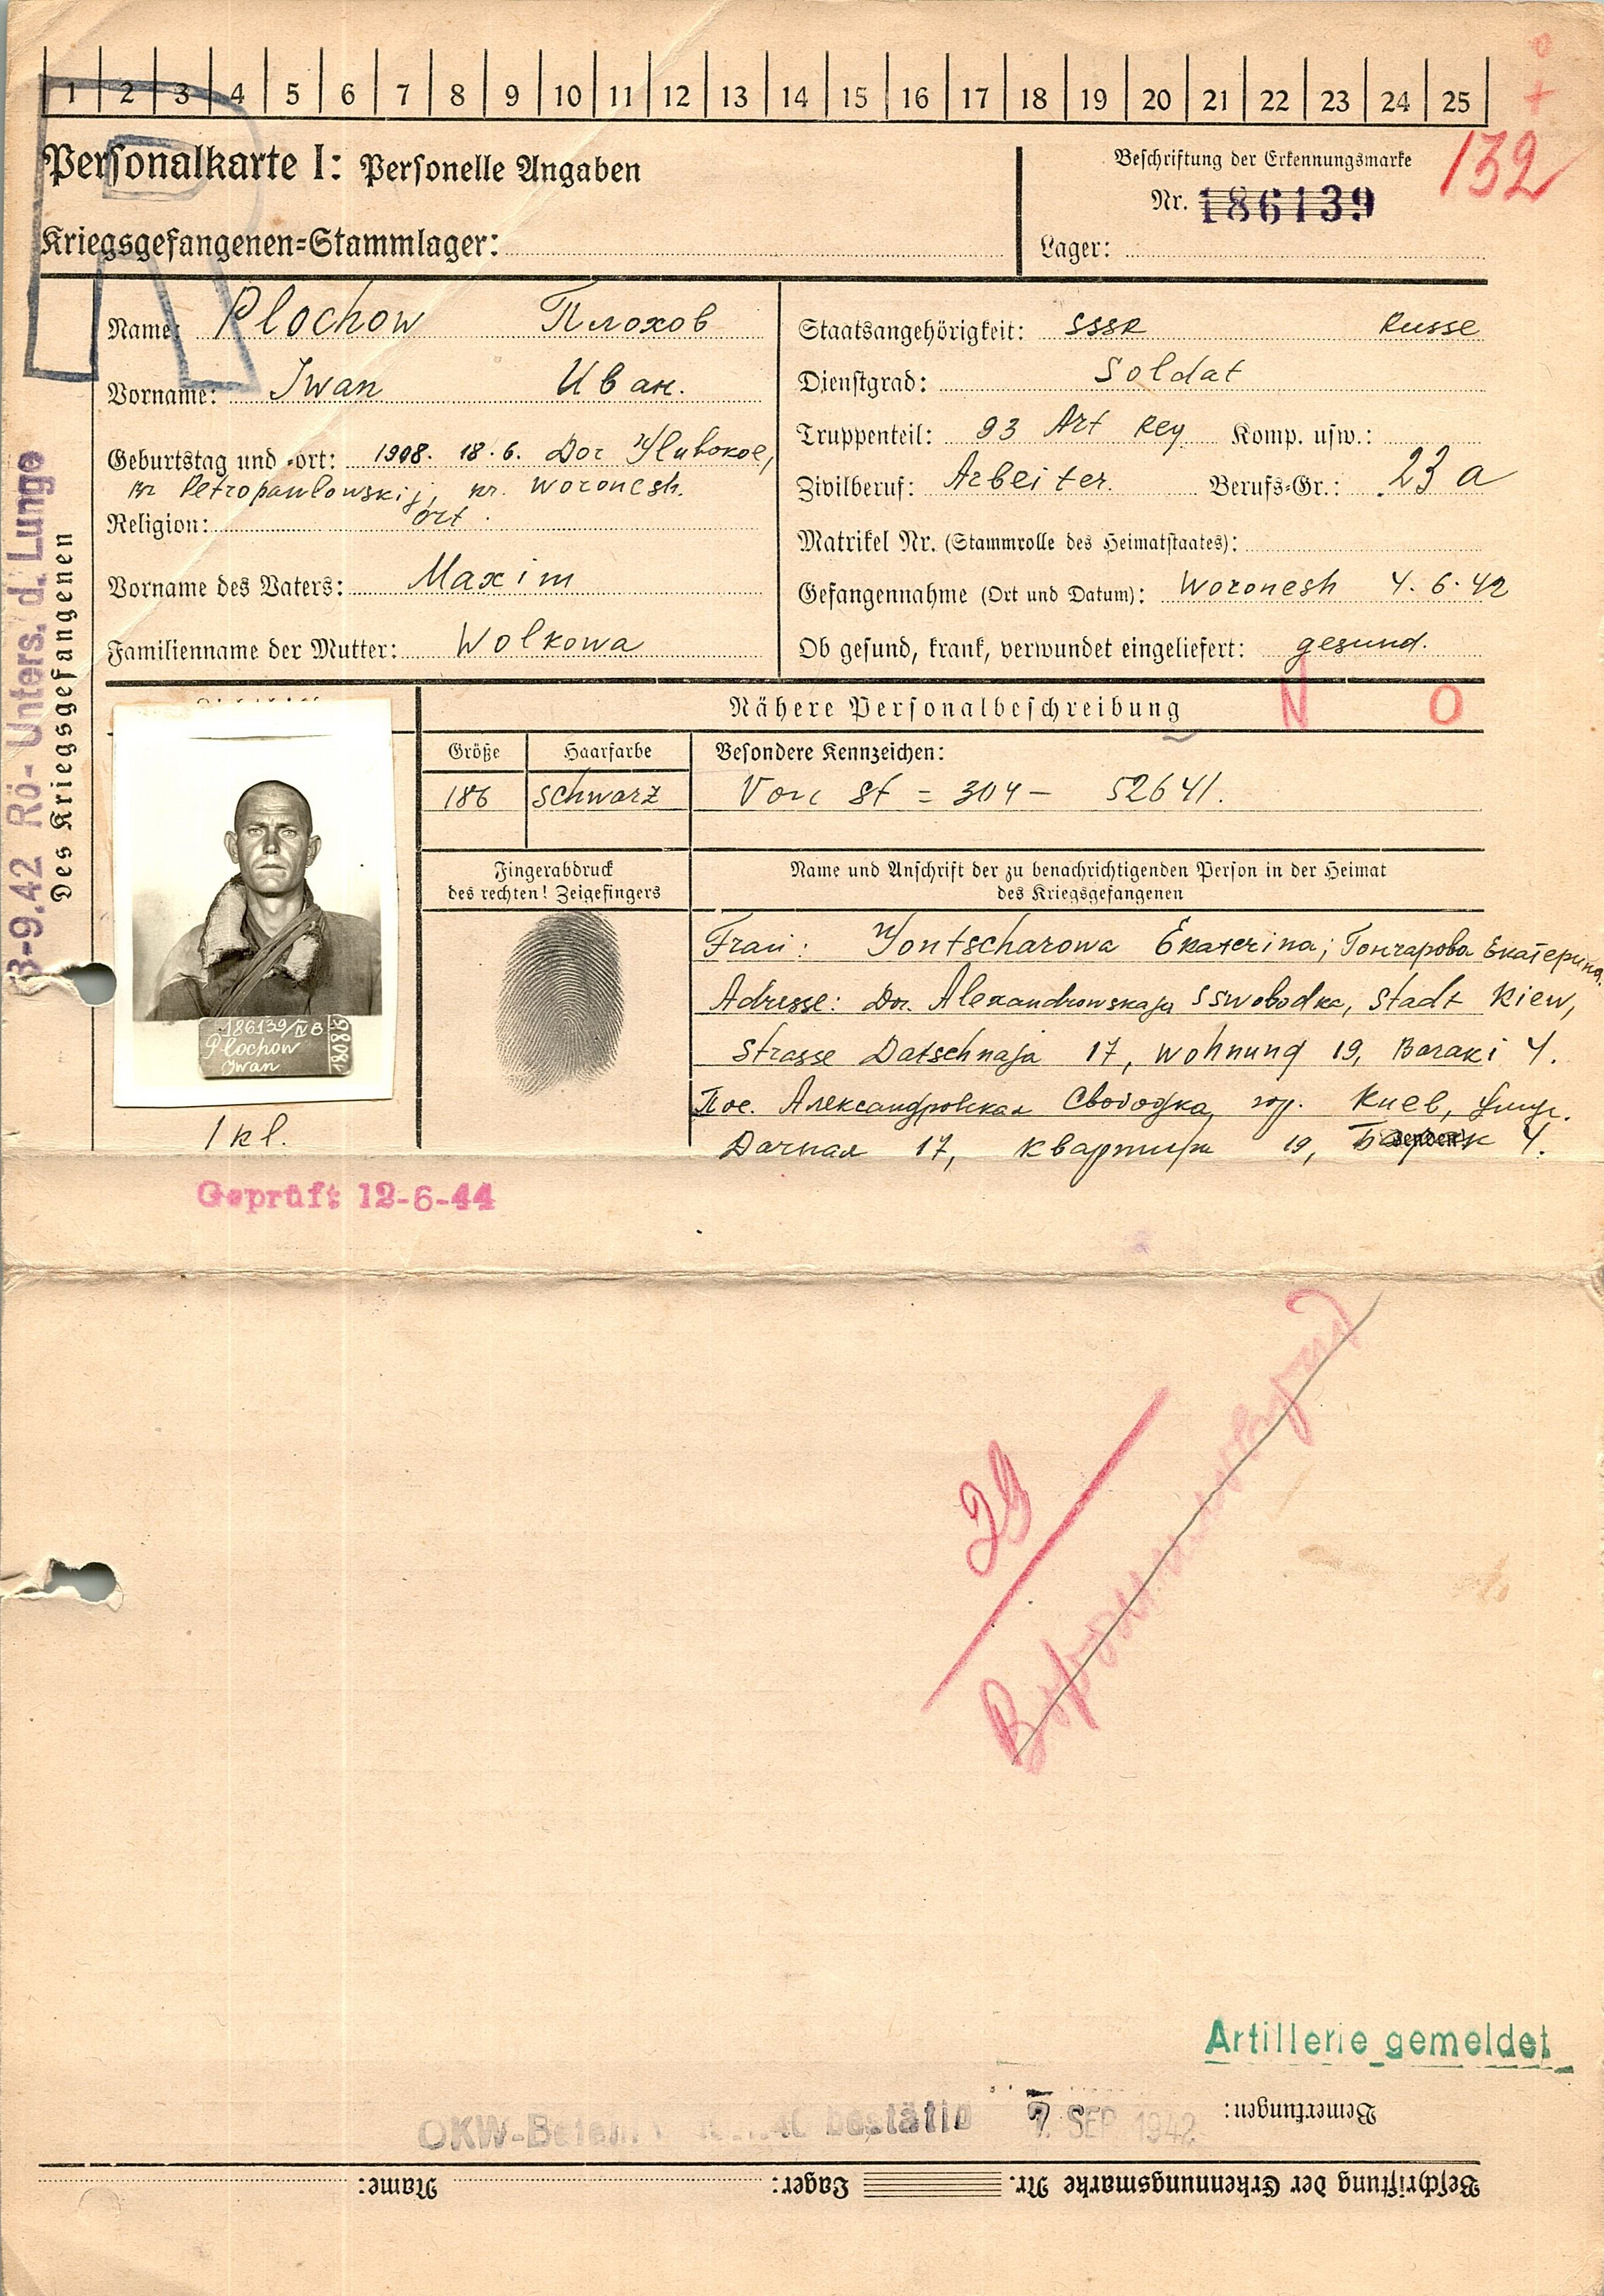 1 2 3 4 5 6 7 8 9 10 11 12 13 14 15 16 17 18 19 20 21 22 23 24 25
Personalkarte I: Personelle Angaben
Kriegsgefangenen-Stammlager:
Beschriftung der Erkennungsmarke
132
Nr. 186139
Lager:
Des Kriegsgefangenen
3-9.42 Rö- Unters. d. Lunge
Name: Plochow Плохов
Vorname: Iwan Иван.
Geburtstag und -ort: 1908. 18.6. Dor
Petropawlowskij, Woronesh.
Religion: ort.
Vorname des Vaters: Maxim
Familienname der Mutter: Wolkowa
Staatsangehörigkeit: SSSR Russe
Dienstgrad: Soldat
Truppenteil: 93 Art Reg Komp. usw.:
Zivilberuf: Arbeiter. Berufs-Gr.: 23 a
Matrikel Nr. (Stammrolle des Heimatstaates):
Gefangennahme (Ort und Datum): Woronesh 4.6.42
Ob gesund, krank, verwundet eingeliefert: gesund.
Nähere Personalbeschreibung N O
Größe Haarfarbe Besondere Kennzeichen:
186 schwarz Von St = 304 - 52641.
Fingerabdruck
des rechten! Zeigefingers
Name und Anschrift der zu benachrichtigenden Person in der Heimat
des Kriegsgefangenen
Frau: Gontscharowa Ekaterina; Гончарова Екатерина.
Adresse: Dor. Alexandrowskaja Sswobodka, Stadt Kiew,
Strasse Datschnaja 17, Wohnung 19, Baraki 4.
Пос. Александровская Свободка, гор. Киев,
Дачная 17, квартира 19, 4.
186139/IV B
Plochow
Iwan
18081
1 kl.
Geprüft 12-6-44
Artillerie gemeldet
Bemerkungen:
OKW-Befehl bestätig 7. SEP. 1942
Beschriftung der Erkennungsmarke Nr. Lager: Name: